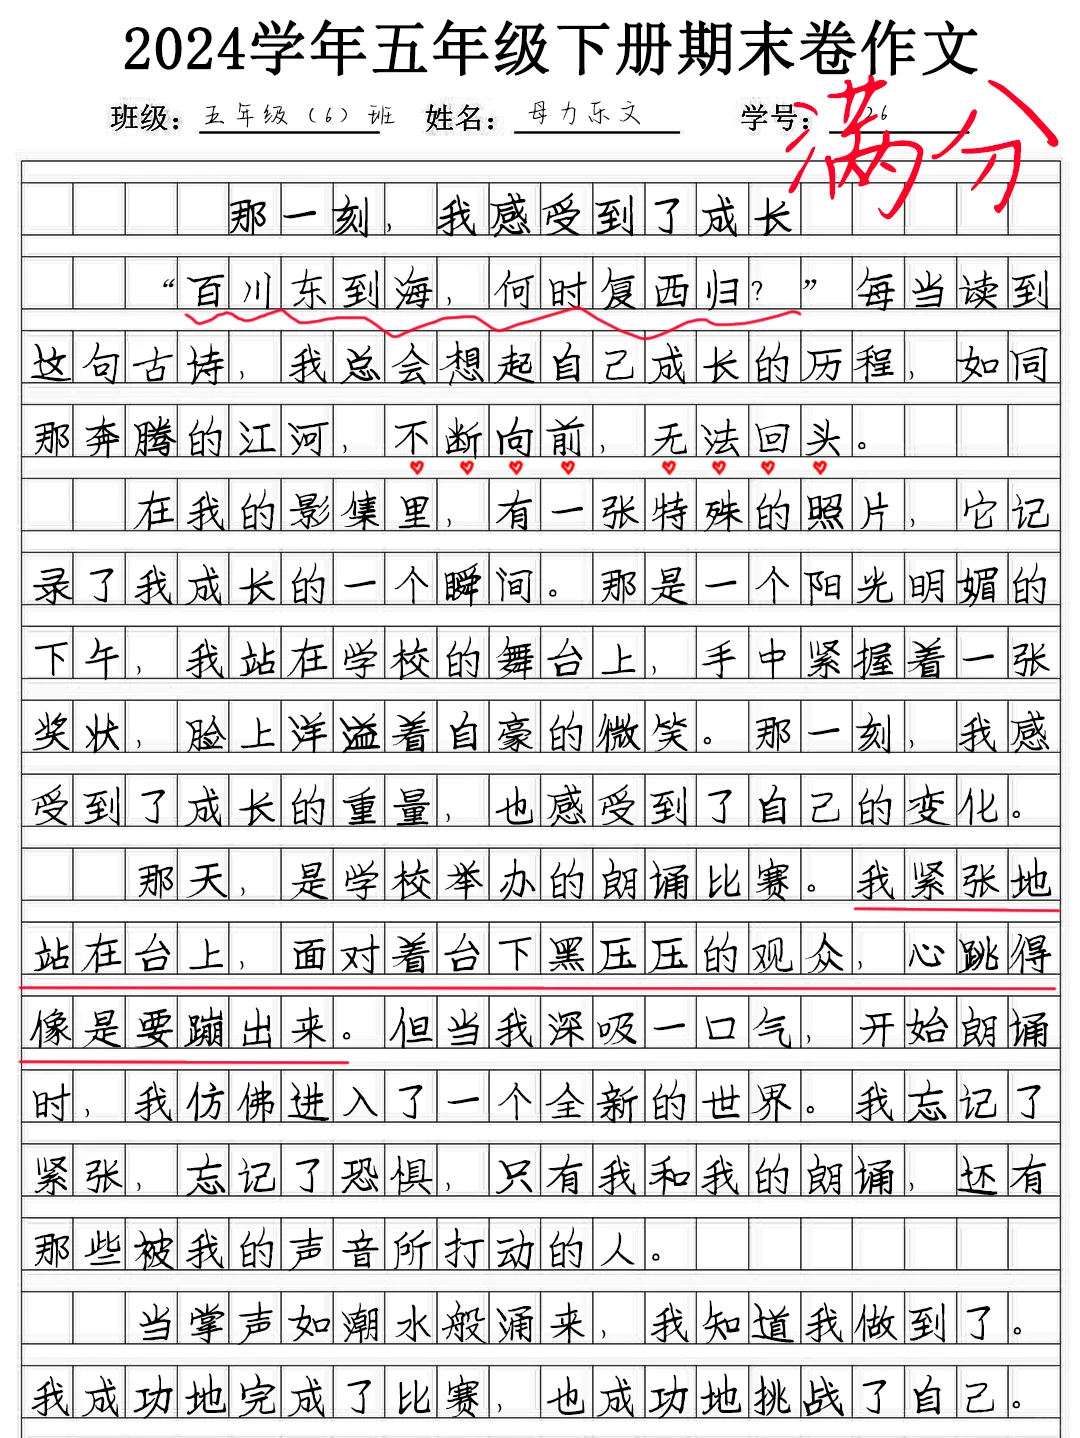 2024学年五年级下册期末卷作文
班级：五年级（6）班 姓名：母力乐文 学号：26
满分
那一刻，我感受到了成长
“百川东到海，何时复西归？”每当读到
这句古诗，我总会想起自己成长的历程，如同
那奔腾的江河，不断向前，无法回头。
在我的影集里，有一张特殊的照片，它记
录了我成长的一个瞬间。那是一个阳光明媚的
下午，我站在学校的舞台上，手中紧握着一张
奖状，脸上洋溢着自豪的微笑。那一刻，我感
受到了成长的重量，也感受到了自己的变化。
那天，是学校举办的朗诵比赛。我紧张地
站在台上，面对着台下黑压压的观众，心跳得
像是要蹦出来。但当我深吸一口气，开始朗诵
时，我仿佛进入了一个全新的世界。我忘记了
紧张，忘记了恐惧，只有我和我的朗诵，还有
那些被我的声音所打动的人。
当掌声如潮水般涌来，我知道我做到了。
我成功地完成了比赛，也成功地挑战了自己。